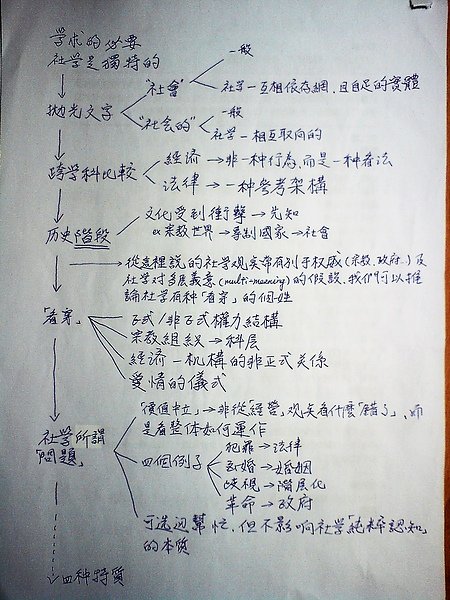 学术的必要
社学是獨特的
一般
"社會"
社学一互相依存網,且自足的實體
拋光文字
一般
"社会的"
社学一相互取向的
跨学科比較
経済→非一种行為,而是一种看法
法律→一种參考架構
历史階段
文化受到衝擊→先知
ex宗教世界→專制國家→社會
從這裡說的社学观点常有别于权威(宗教,政府..)及
社学对多层義意(multi-meaning)的假設,我們可以推
論社学有种「看穿」的個性
「看穿」
正式/非正式權力結構
宗教組織→科层
經済一机構的非正式关係
愛情的儀式
社学所謂
「問題」
「價值中立」→非從「經營」观点看什麼「錯了」,而
是看整体如何運作
四個例子
犯罪→法律
离婚→婚姻
歧視→階层化
革命→政府
可选边幫忙,但不影响社学「純粹認知」
的本质
四种特質